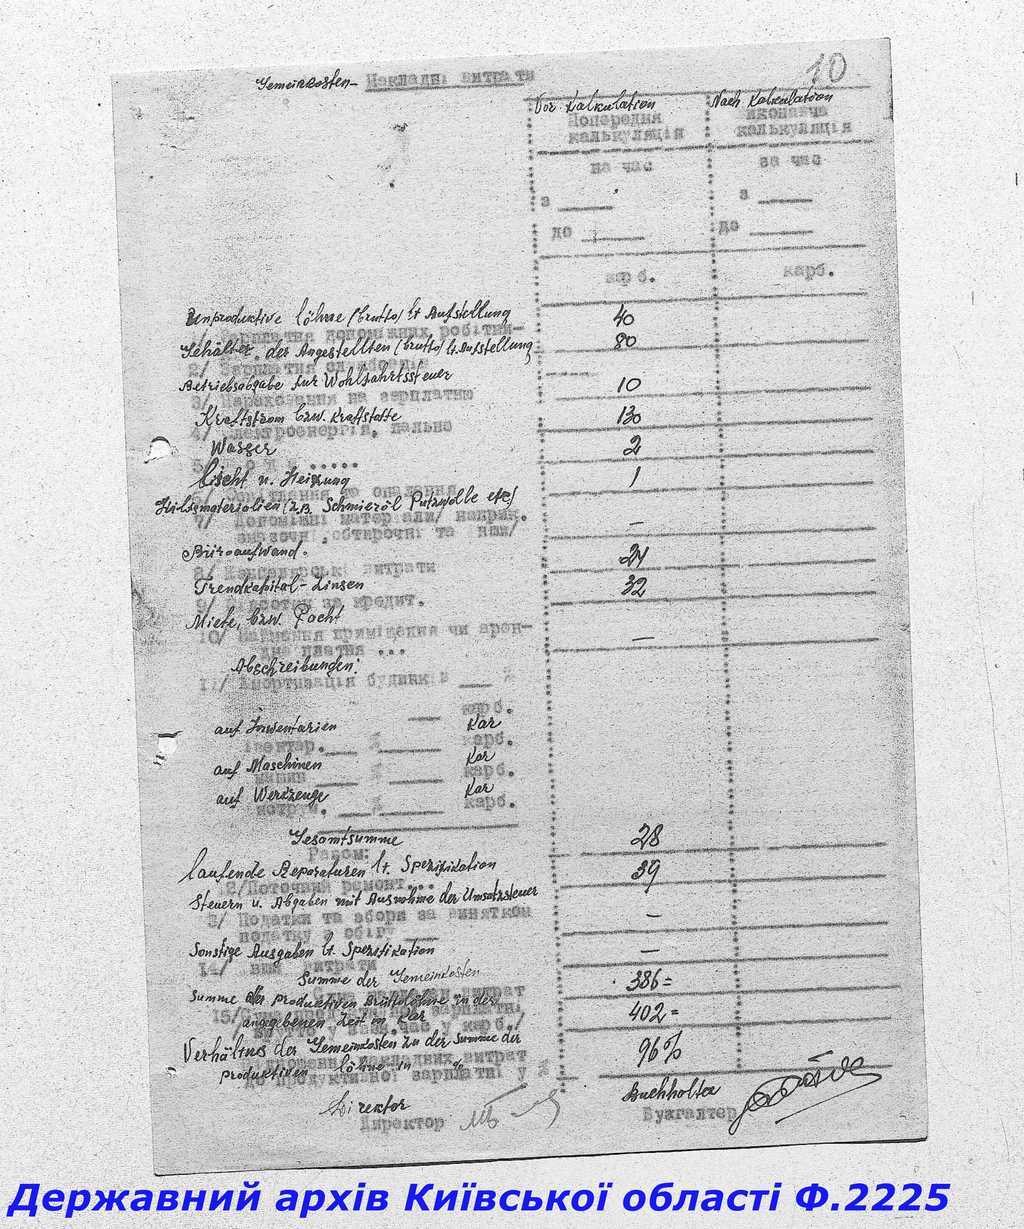 10
Gemeinkosten - Накладні витрати
Vor Kalkulation Nach Kalkulation
Попередня виконавча
калькуляція калькуляція
на час за час
з ____ з ____
до ____ до ____
карб. карб.
Unproduktive Löhne (brutto) lt Aufstellung 40
Зарплатня допоміжних робітни-
Gehälter der Angestellten (brutto) lt. Aufstellung 80
2/ Зарплатня
Betriebsabgabe für Wohlfahrtssteuer 10
3/ Нарахування на зарплатню
Kraftstrom bzw. Kraftstoffe 130
4/ Електроенергія, пально
Wasser 2
5/ Вода .....
Licht u. Heizung 1
6/ Освітлення то опалення
Hilfsmaterialien (z.B. Schmieröl Putzwolle etc) —
7/ Допоміжні матеріали/ наприк.
змазочні, обтирочні та інш/
Büroaufwand. 24
8/ Канцелярські витрати
Fremdkapital-Zinsen 32
9/ за кредит.
Miete, bzw. Pacht —
10/ Наймення приміщення чи арен-
дна платня ...
Abschreibungen:
11/ Амортизація будинків ____ %
____ карб.
auf Inventarien Kar
Інвентар. ____ % ____ карб.
auf Maschinen Kar
машин ____ % ____ карб.
auf Werkzeuge Kar
інструм. ____ % ____ карб.
Gesamtsumme 28
Разом:
Laufende Reparaturen lt. Spezifikation 39
12/Поточний ремонт...
Steuern u. Abgaben mit Ausnahme der Umsatzsteuer —
3/ Податки та збори за винятком
податку з обігу
Sonstige Ausgaben lt. Spezifikation —
14/ Інші витрати
Summe der Gemeinkosten 386=
витрат
Summe der produktiven Bruttolöhne in der 402=
15/Сума продуктивної зарплатні
angegebenen Zeit in Kar
у час у карб./
Verhältnis der Gemeinkosten zu der Summe der 96%
накладних витрат
produktiven Löhne in %
до продуктивної зарплатні у %
Direktor Buchhalter
Директор Бухгалтер
Державний архів Київської області Ф.2225